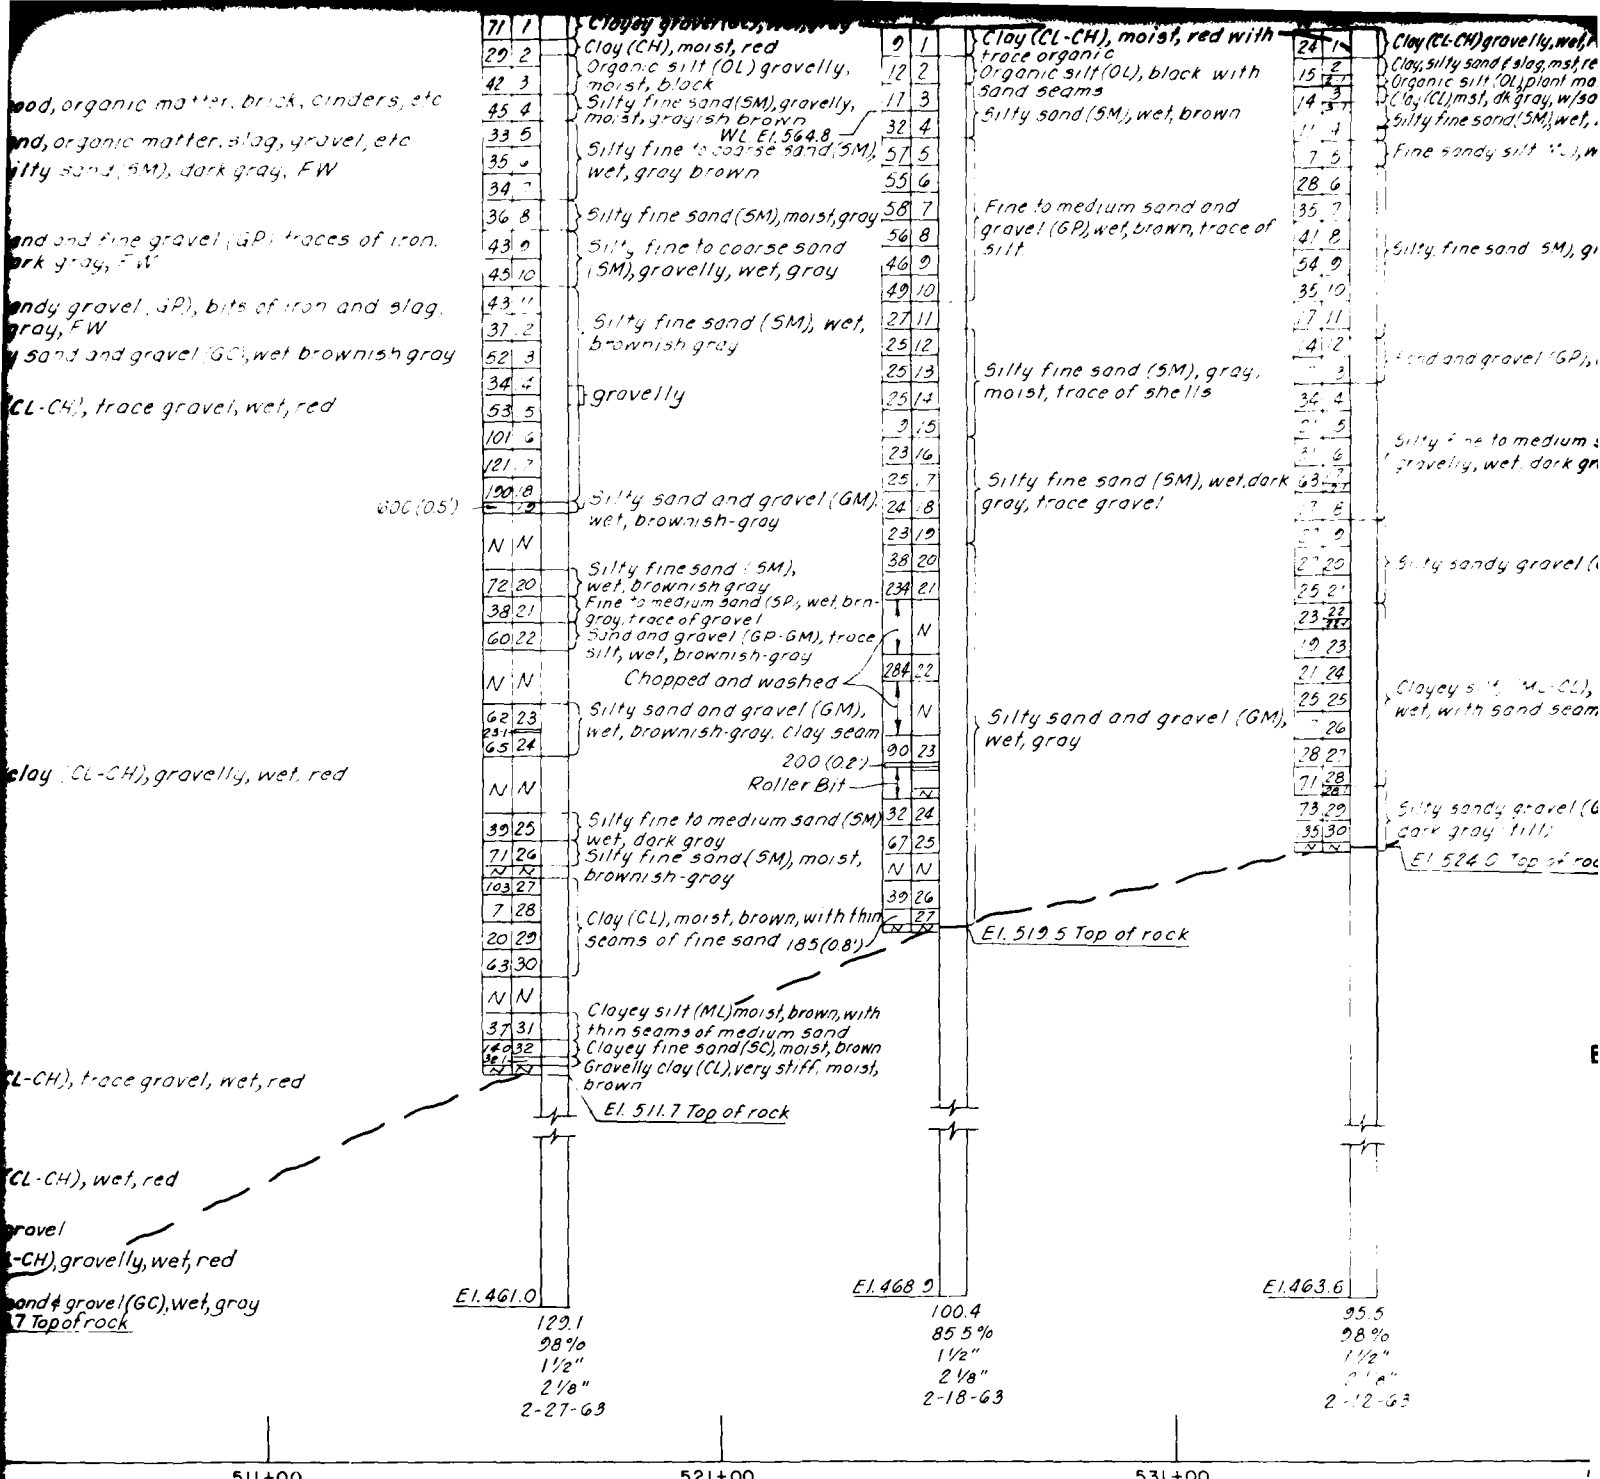 organic matter, brick, cinders, etc
organic matter, slag, gravel, etc
sand (SM), dark gray, FW
and fine gravel (GP) traces of iron,
gray, FW
gravel GP), bits of iron and slag,
gray, FW
sand and gravel (GC), wet brownish gray
CL-CH), trace gravel, wet, red
clay (CL-CH), gravelly, wet, red
CL-CH), trace gravel, wet, red
(CL-CH), wet, red
gravel
-CH), gravelly, wet, red
& gravel (GC), wet, gray
7 Top of rock
71 1
29 2
42 3
45 4
33 5
35 6
34 7
36 8
43 9
45 10
43 11
37 2
52 3
34 4
53 5
101 6
121 7
190 18
600 (0.5')
19
N N
72 20
38 21
60 22
N N
62 23
23-1
65 24
N N
39 25
71 26
N N
103 27
7 28
20 29
63 30
N N
37 31
140 32
32-1
N N
Clayey gravel (GC), wet, gray
Clay (CH), moist, red
Organic silt (OL) gravelly,
moist, black
Silty fine sand (SM), gravelly,
moist, grayish brown
WL El. 564.8
Silty fine to coarse sand (SM),
wet, gray brown
Silty fine sand (SM), moist, gray
Silty fine to coarse sand
(SM), gravelly, wet, gray
Silty fine sand (SM), wet,
brownish gray
gravelly
Silty sand and gravel (GM)
wet, brownish-gray
Silty fine sand (SM),
wet, brownish gray
Fine to medium sand (SP), wet, brn-
gray, trace of gravel
Sand and gravel (GP-GM), trace
silt, wet, brownish-gray
Chopped and washed
Silty sand and gravel (GM),
wet, brownish-gray, clay seam
200 (0.2')
Roller Bit
Silty fine to medium sand (SM)
wet, dark gray
Silty fine sand (SM), moist,
brownish-gray
Clay (CL), moist, brown, with thin
seams of fine sand 185 (0.8')
Clayey silt (ML) moist, brown, with
thin seams of medium sand
Clayey fine sand (SC), moist, brown
Gravelly clay (CL), very stiff, moist,
brown
El. 511.7 Top of rock
El. 461.0
129.1
98%
1 1/2"
2 1/8"
2-27-63
9 1
12 2
17 3
32 4
57 5
55 6
58 7
56 8
46 9
49 10
27 11
25 12
25 13
25 14
9 15
23 16
25 7
24 18
23 19
38 20
234 21
N
284 22
N
90 23
N
32 24
67 25
N N
39 26
27
N N
Clay (CL-CH), moist, red with
trace organic
Organic silt (OL), black with
sand seams
Silty sand (SM), wet, brown
Fine to medium sand and
gravel (GP), wet, brown, trace of
silt
Silty fine sand (SM), gray,
moist, trace of shells
Silty fine sand (SM), wet, dark
gray, trace gravel
Silty sand and gravel (GM),
wet, gray
El. 519.5 Top of rock
El. 468.9
100.4
85.5%
1 1/2"
2 1/8"
2-18-63
24 1
15 2
14 3
4
7 5
28 6
35 7
41 8
54 9
35 10
17 11
14 12
3
34 4
5
6
63
8
9
20
25
23 22
19 23
21 24
25 25
26
28 27
71 28
73 29
35 30
N N
Clay (CL-CH) gravelly, wet,
Clay, silty sand & slag, mst,
Organic silt (OL), plant
Clay (CL), mst, dk gray,
Silty fine sand (SM), wet,
Fine sandy silt
Silty fine sand SM),
and gravel (GP),
Silty fine to medium
gravelly, wet, dark
Silty sandy gravel
Clayey silt (ML-CL),
wet, with sand
Silty sandy gravel
dark gray (till)
El. 524.0 Top of
El. 463.6
95.5
98%
1 1/2"
2 1/8"
2-12-63
511+00
521+00
531+00